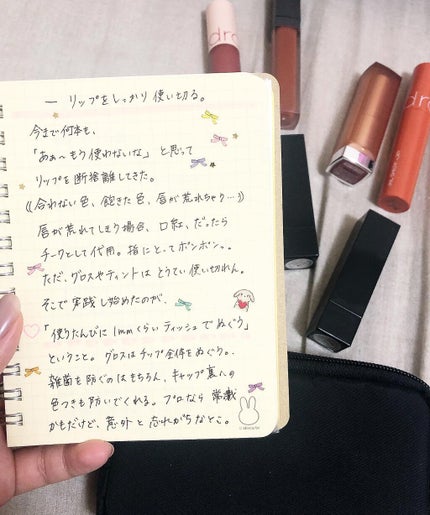 ー リップをしっかり使い切る。
今まで何本も、
「あぁ〜もう使わないな」と思って
リップを断捨離してきた。
《合わない色、飽きた色、唇が荒れちゃう…》
唇が荒れてしまう場合、口紅、だったら
チークとして代用。指にとってポンポン。。
ただ、グロスやティントはとうてい使い切れん。
そこで実践し始めたのが、
「使うたんびに1mmくらいティッシュでぬぐう」
ということ。グロスはチップ全体をぬぐう。.
雑菌を防ぐのはもちろん、キャップ裏への
色つきも防いでくれる。プロなら常識
かもだけど、意外と忘れがちなとこ。